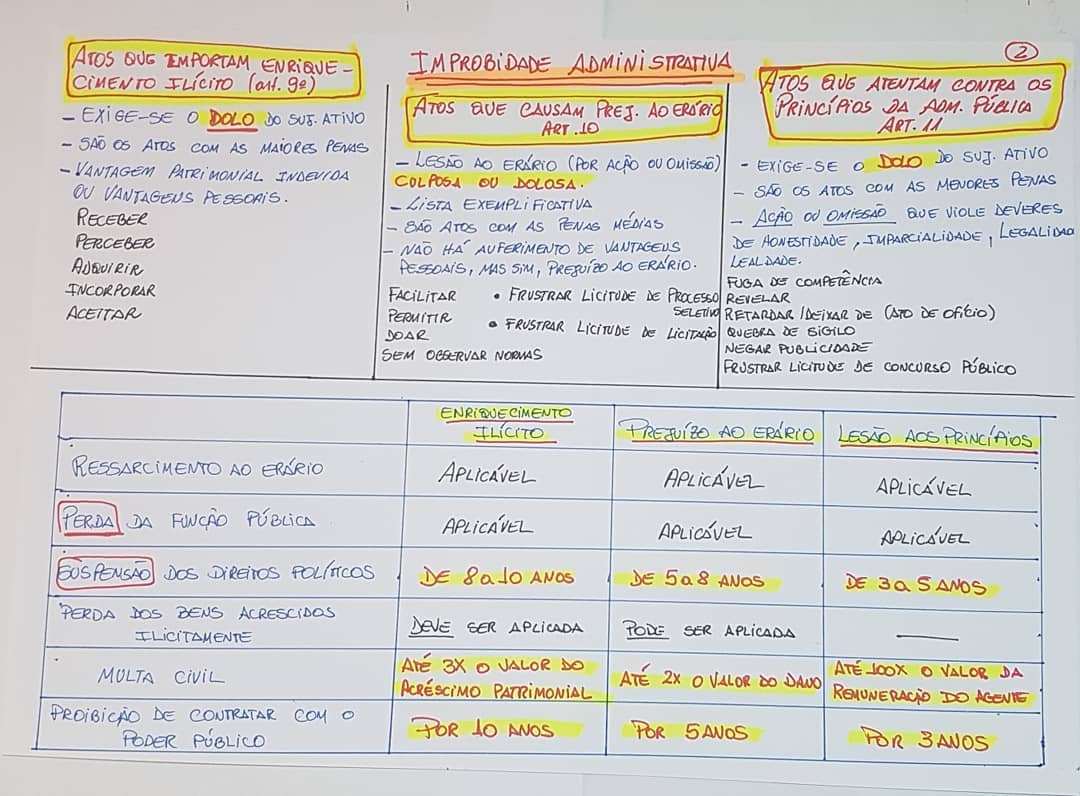 2
IMPROBIDADE ADMINISTRATIVA
ATOS QUE IMPORTAM ENRIQUE-
CIMENTO ILÍCITO (art. 9º)
- EXIGE-SE O DOLO DO SUJ. ATIVO
- SÃO OS ATOS COM AS MAIORES PENAS
- VANTAGEM PATRIMONIAL INDEVIDA
OU VANTAGENS PESSOAIS.
RECEBER
PERCEBER
ADQUIRIR
INCORPORAR
ACEITAR
ATOS QUE CAUSAM PREJ. AO ERÁRIO
ART. 10
- LESÃO AO ERÁRIO (POR AÇÃO OU OMISSÃO)
CULPOSA OU DOLOSA.
- LISTA EXEMPLIFICATIVA
- SÃO ATOS COM AS PENAS MÉDIAS
- NÃO HÁ AUFERIMENTO DE VANTAGENS
PESSOAIS, MAS SIM, PREJUÍZO AO ERÁRIO.
FACILITAR • FRUSTRAR LICITUDE DE PROCESSO
SELETIVO
PERMITIR
• FRUSTRAR LICITUDE DE LICITAÇÃO
DOAR
SEM OBSERVAR NORMAS
ATOS QUE ATENTAM CONTRA OS
PRINCÍPIOS DA ADM. PÚBLICA
ART. 11
- EXIGE-SE O DOLO DO SUJ. ATIVO
- SÃO OS ATOS COM AS MENORES PENAS
- AÇÃO OU OMISSÃO QUE VIOLE DEVERES
DE HONESTIDADE, IMPARCIALIDADE, LEGALIDAD
LEALDADE.
FUGA DE COMPETÊNCIA
REVELAR
RETARDAR / DEIXAR DE (ATO DE OFÍCIO)
QUEBRA DE SIGILO
NEGAR PUBLICIDADE
FRUSTRAR LICITUDE DE CONCURSO PÚBLICO
ENRIQUECIMENTO
ILÍCITO
PREJUÍZO AO ERÁRIO
LESÃO AOS PRINCÍPIOS
RESSARCIMENTO AO ERÁRIO APLICÁVEL APLICÁVEL APLICÁVEL
PERDA DA FUNÇÃO PÚBLICA APLICÁVEL APLICÁVEL APLICÁVEL
SUSPENSÃO DOS DIREITOS POLÍTICOS DE 8 a 10 ANOS DE 5 a 8 ANOS DE 3 a 5 ANOS
PERDA DOS BENS ACRESCIDOS
ILICITAMENTE
DEVE SER APLICADA PODE SER APLICADA —
MULTA CIVIL
ATÉ 3X O VALOR DO
ACRÉSCIMO PATRIMONIAL
ATÉ 2X O VALOR DO DANO
ATÉ 100X O VALOR DA
REMUNERAÇÃO DO AGENTE
PROIBIÇÃO DE CONTRATAR COM O
PODER PÚBLICO
POR 10 ANOS POR 5 ANOS POR 3 ANOS